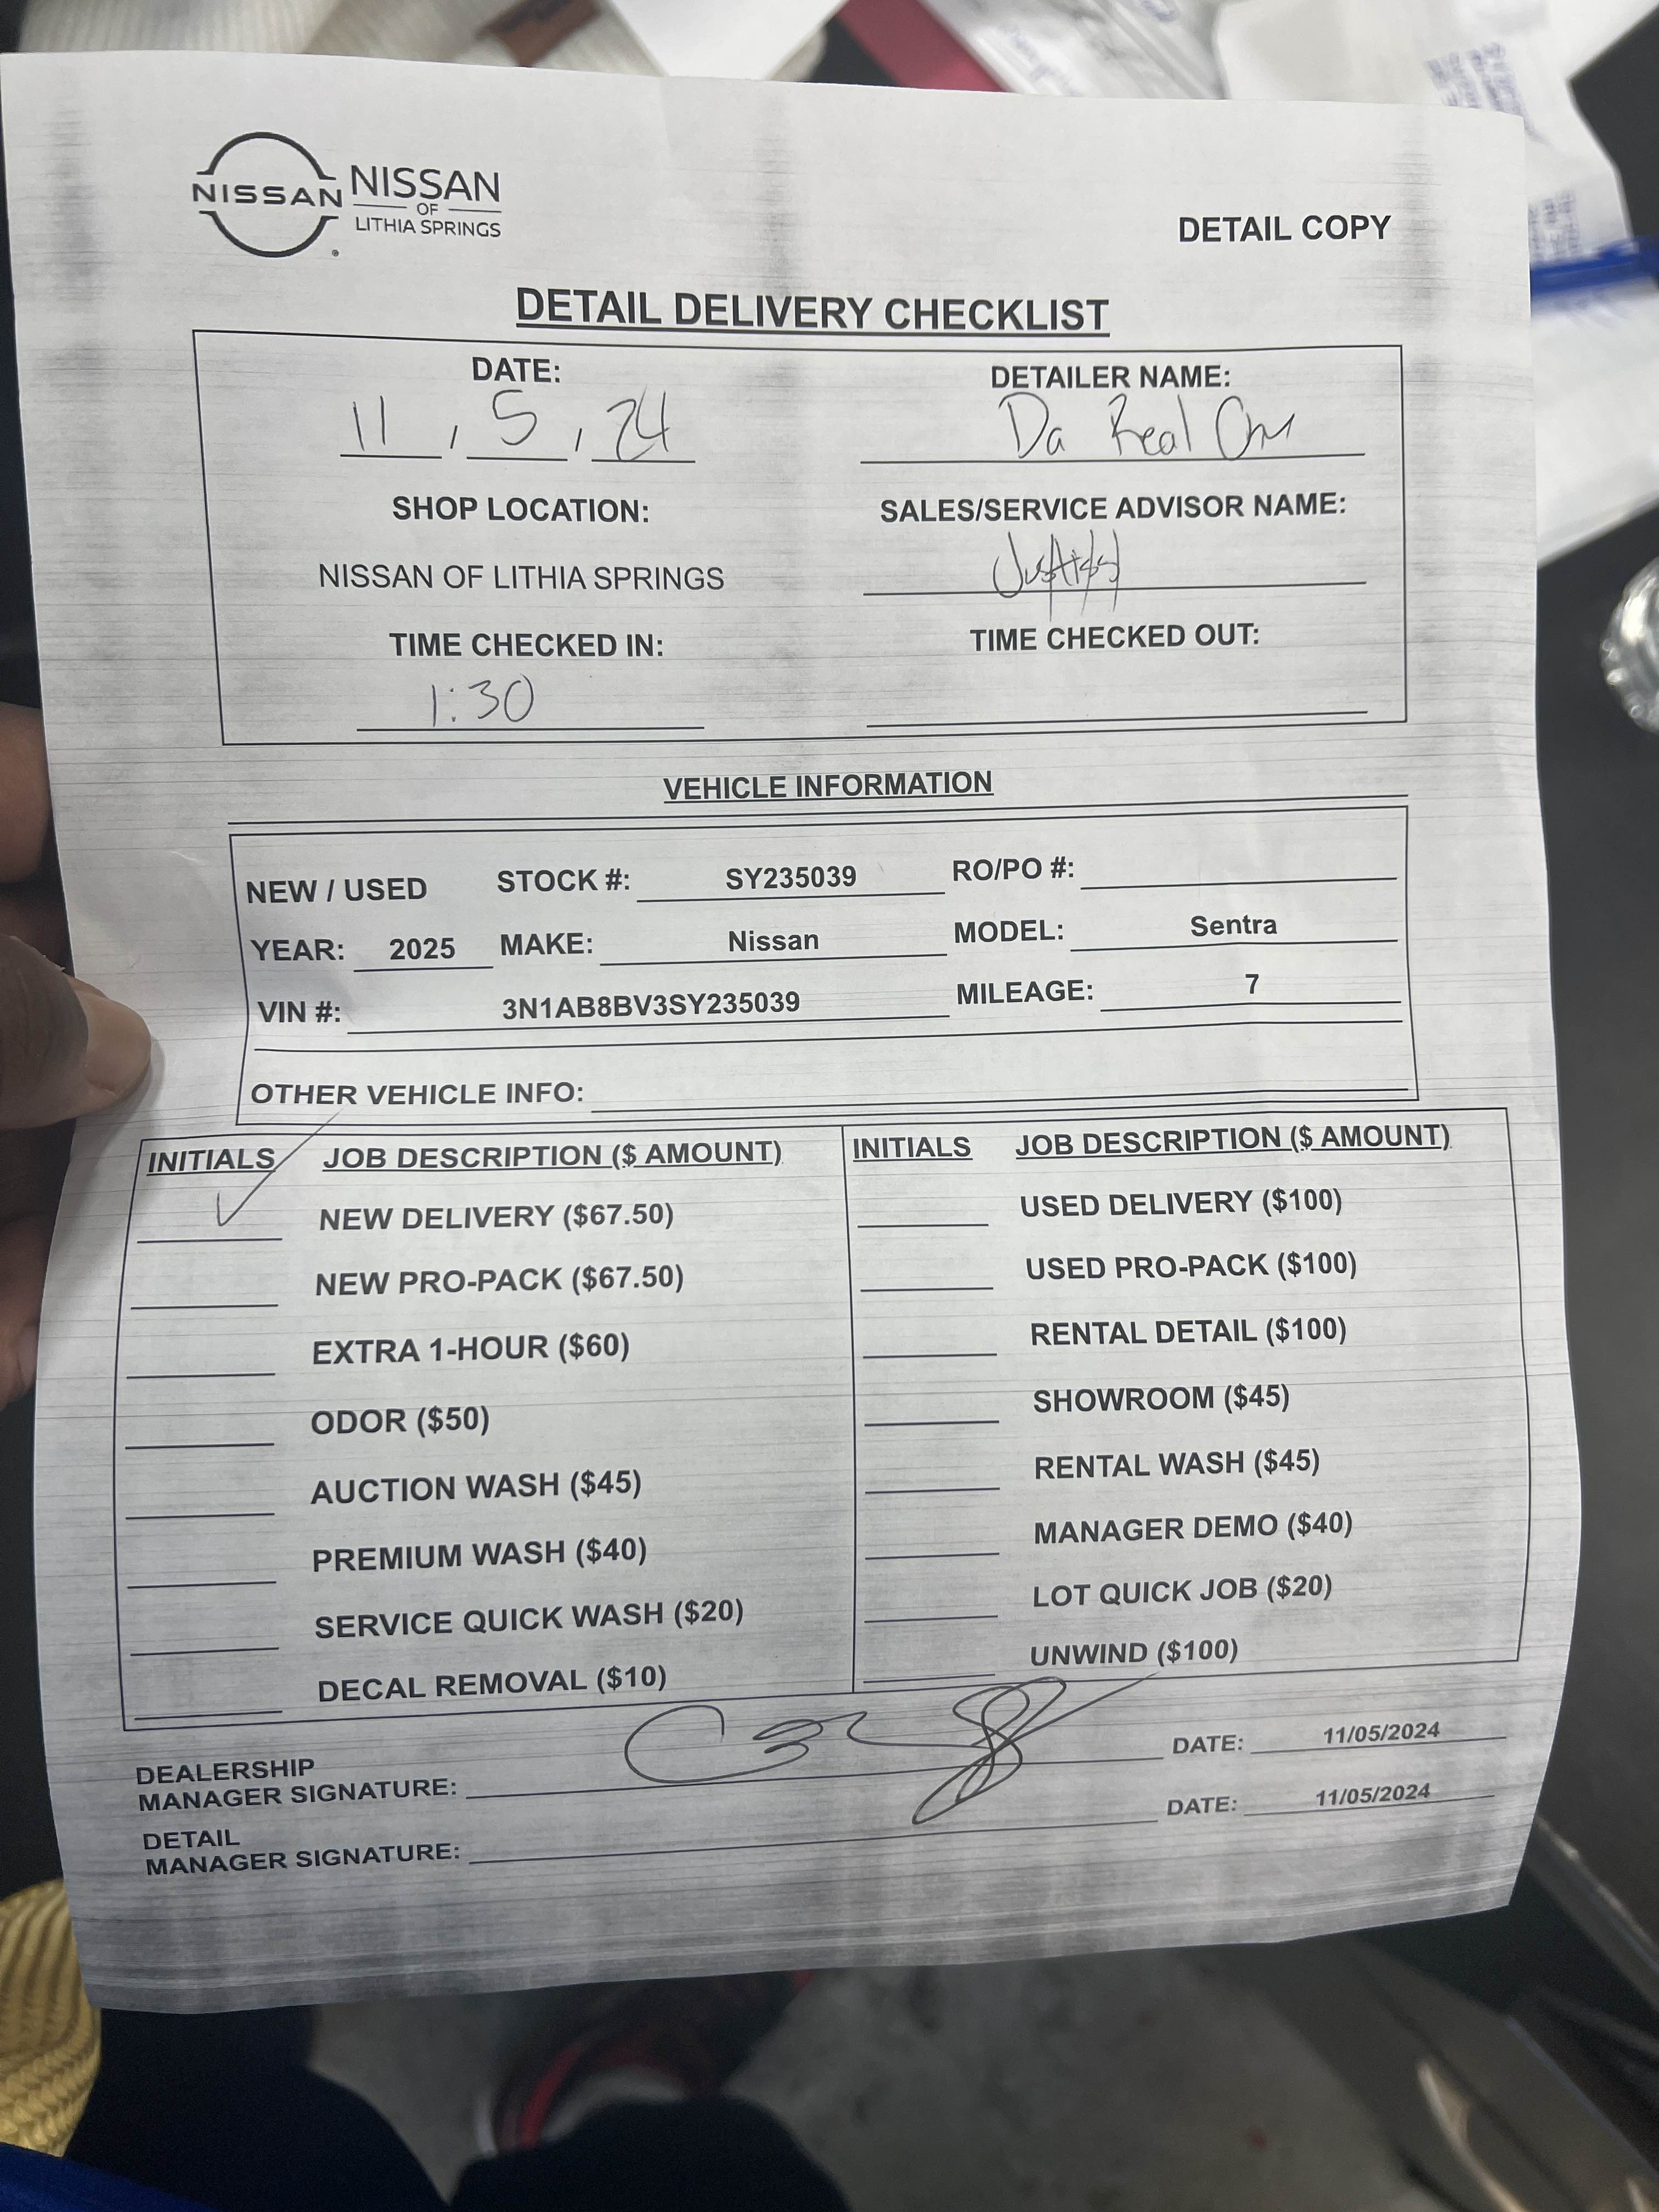 NISSAN
NISSAN
OF
LITHIA SPRINGS
DETAIL COPY
DETAIL DELIVERY CHECKLIST
DATE: DETAILER NAME:
11 / 5 / 24 Da Real
SHOP LOCATION: SALES/SERVICE ADVISOR NAME:
NISSAN OF LITHIA SPRINGS
TIME CHECKED IN: TIME CHECKED OUT:
1:30
VEHICLE INFORMATION
NEW / USED STOCK #: SY235039 RO/PO #:
YEAR: 2025 MAKE: Nissan MODEL: Sentra
VIN #: 3N1AB8BV3SY235039 MILEAGE: 7
OTHER VEHICLE INFO:
INITIALS JOB DESCRIPTION ($ AMOUNT) INITIALS JOB DESCRIPTION ($ AMOUNT)
✓ NEW DELIVERY ($67.50) USED DELIVERY ($100)
NEW PRO-PACK ($67.50) USED PRO-PACK ($100)
EXTRA 1-HOUR ($60) RENTAL DETAIL ($100)
ODOR ($50) SHOWROOM ($45)
AUCTION WASH ($45) RENTAL WASH ($45)
PREMIUM WASH ($40) MANAGER DEMO ($40)
SERVICE QUICK WASH ($20) LOT QUICK JOB ($20)
DECAL REMOVAL ($10) UNWIND ($100)
DEALERSHIP
MANAGER SIGNATURE: DATE: 11/05/2024
DETAIL
MANAGER SIGNATURE: DATE: 11/05/2024